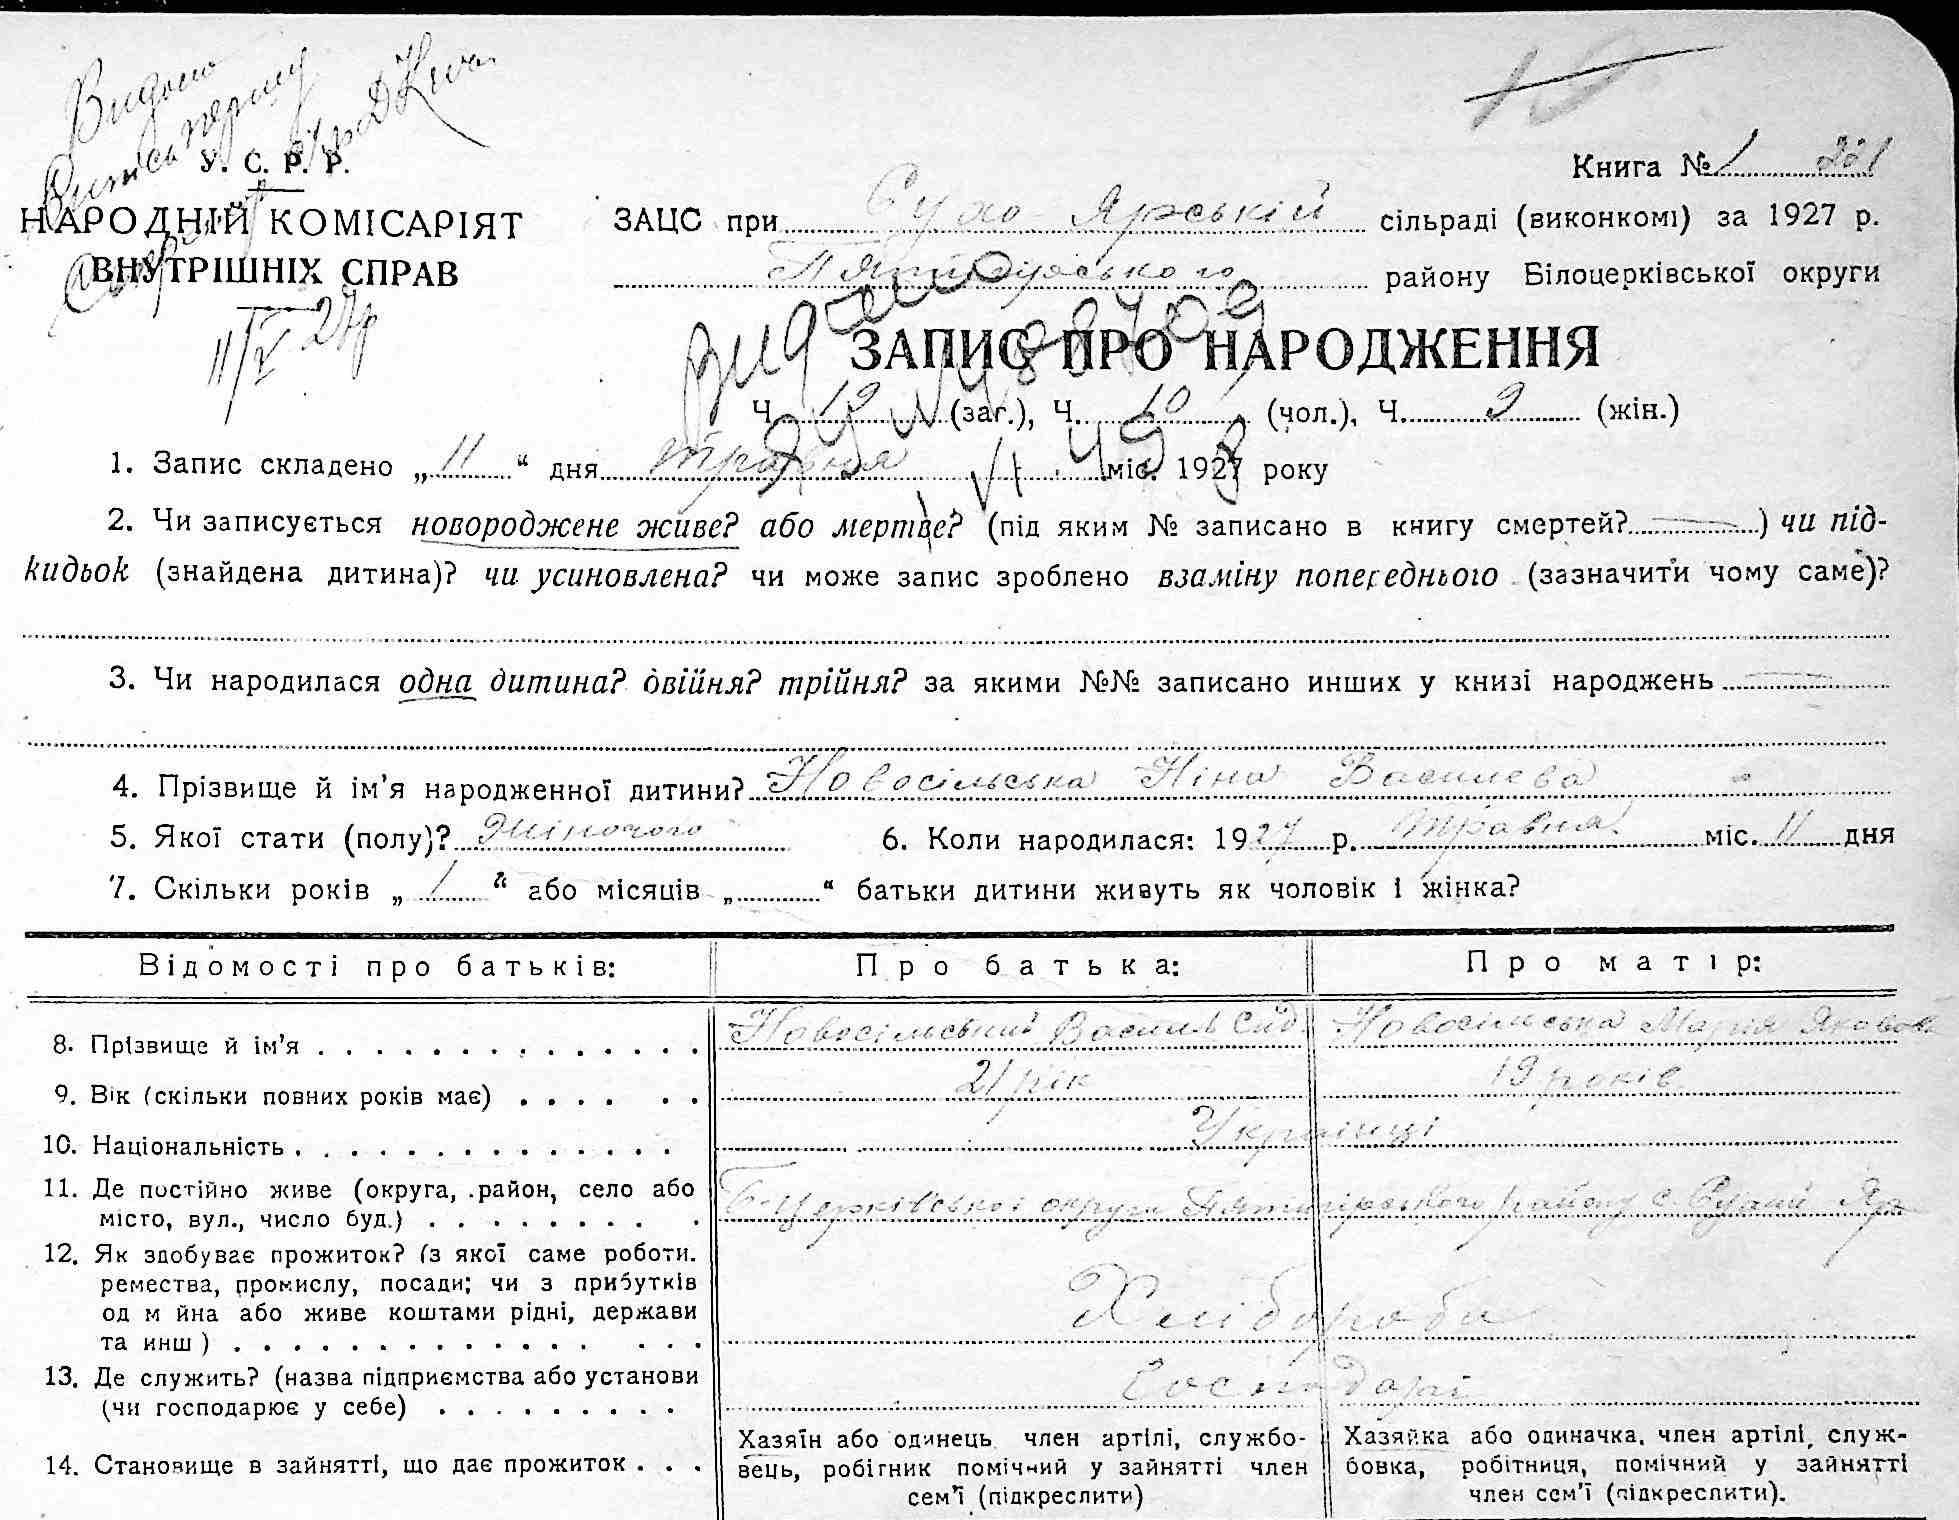 Видано
Випись першу
У. С. Р. Р.
НАРОДНІЙ КОМІСАРІЯТ
ВНУТРІШНІХ СПРАВ
11/V 27р
10
Книга № 1 201
ЗАЦС при Сухо-Ярській сільраді (виконкомі) за 1927 р.
Пятигірського району Білоцерківської округи
видано
ЗАПИС ПРО НАРОДЖЕННЯ
Ч. 19 (заг.), Ч. 10 (чол.), Ч. 9 (жін.)
1. Запис складено „ 11 “ дня травня міс. 1927 року
2. Чи записується новороджене живе? або мертве? (під яким № записано в книгу смертей? —) чи під-
кидьок (знайдена дитина)? чи усиновлена? чи може запис зроблено взаміну попереднього (зазначити чому саме)?
3. Чи народилася одна дитина? двійня? трійня? за якими №№ записано инших у книзі народжень —
4. Прізвище й ім'я народженної дитини? Новосільська Ніна Василева
5. Якої стати (полу)? Жіночого 6. Коли народилася: 1927 р. травня міс. 11 дня
7. Скільки років „ 1 “ або місяців „ “ батьки дитини живуть як чоловік і жінка?
Відомості про батьків: Про батька: Про матір:
8. Прізвище й ім'я Новосільський Василь Сид. Новосільська Марія Яковов
9. Вік (скільки повних років має) 21 рік 19 років
10. Національність Українці
11. Де постійно живе (округа, район, село або
місто, вул., число буд.) Б-Церківської округи Пятигірського району с. Сухий Яр
12. Як здобуває прожиток? (з якої саме роботи.
ремества, промислу, посади; чи з прибутків
од м йна або живе коштами рідні, держави
та инш) Хлібороби
13. Де служить? (назва підприємства або установи
(чи господарює у себе) Господарі
14. Становище в зайнятті, що дає прожиток
Хазяїн або одинець член артілі, службо-
вець, робігник помічний у зайнятті член
сем'ї (підкреслити)
Хазяйка або одиначка, член артілі, служ-
бовка, робітниця, помічний у зайнятті
член сем'ї (підкреслити).